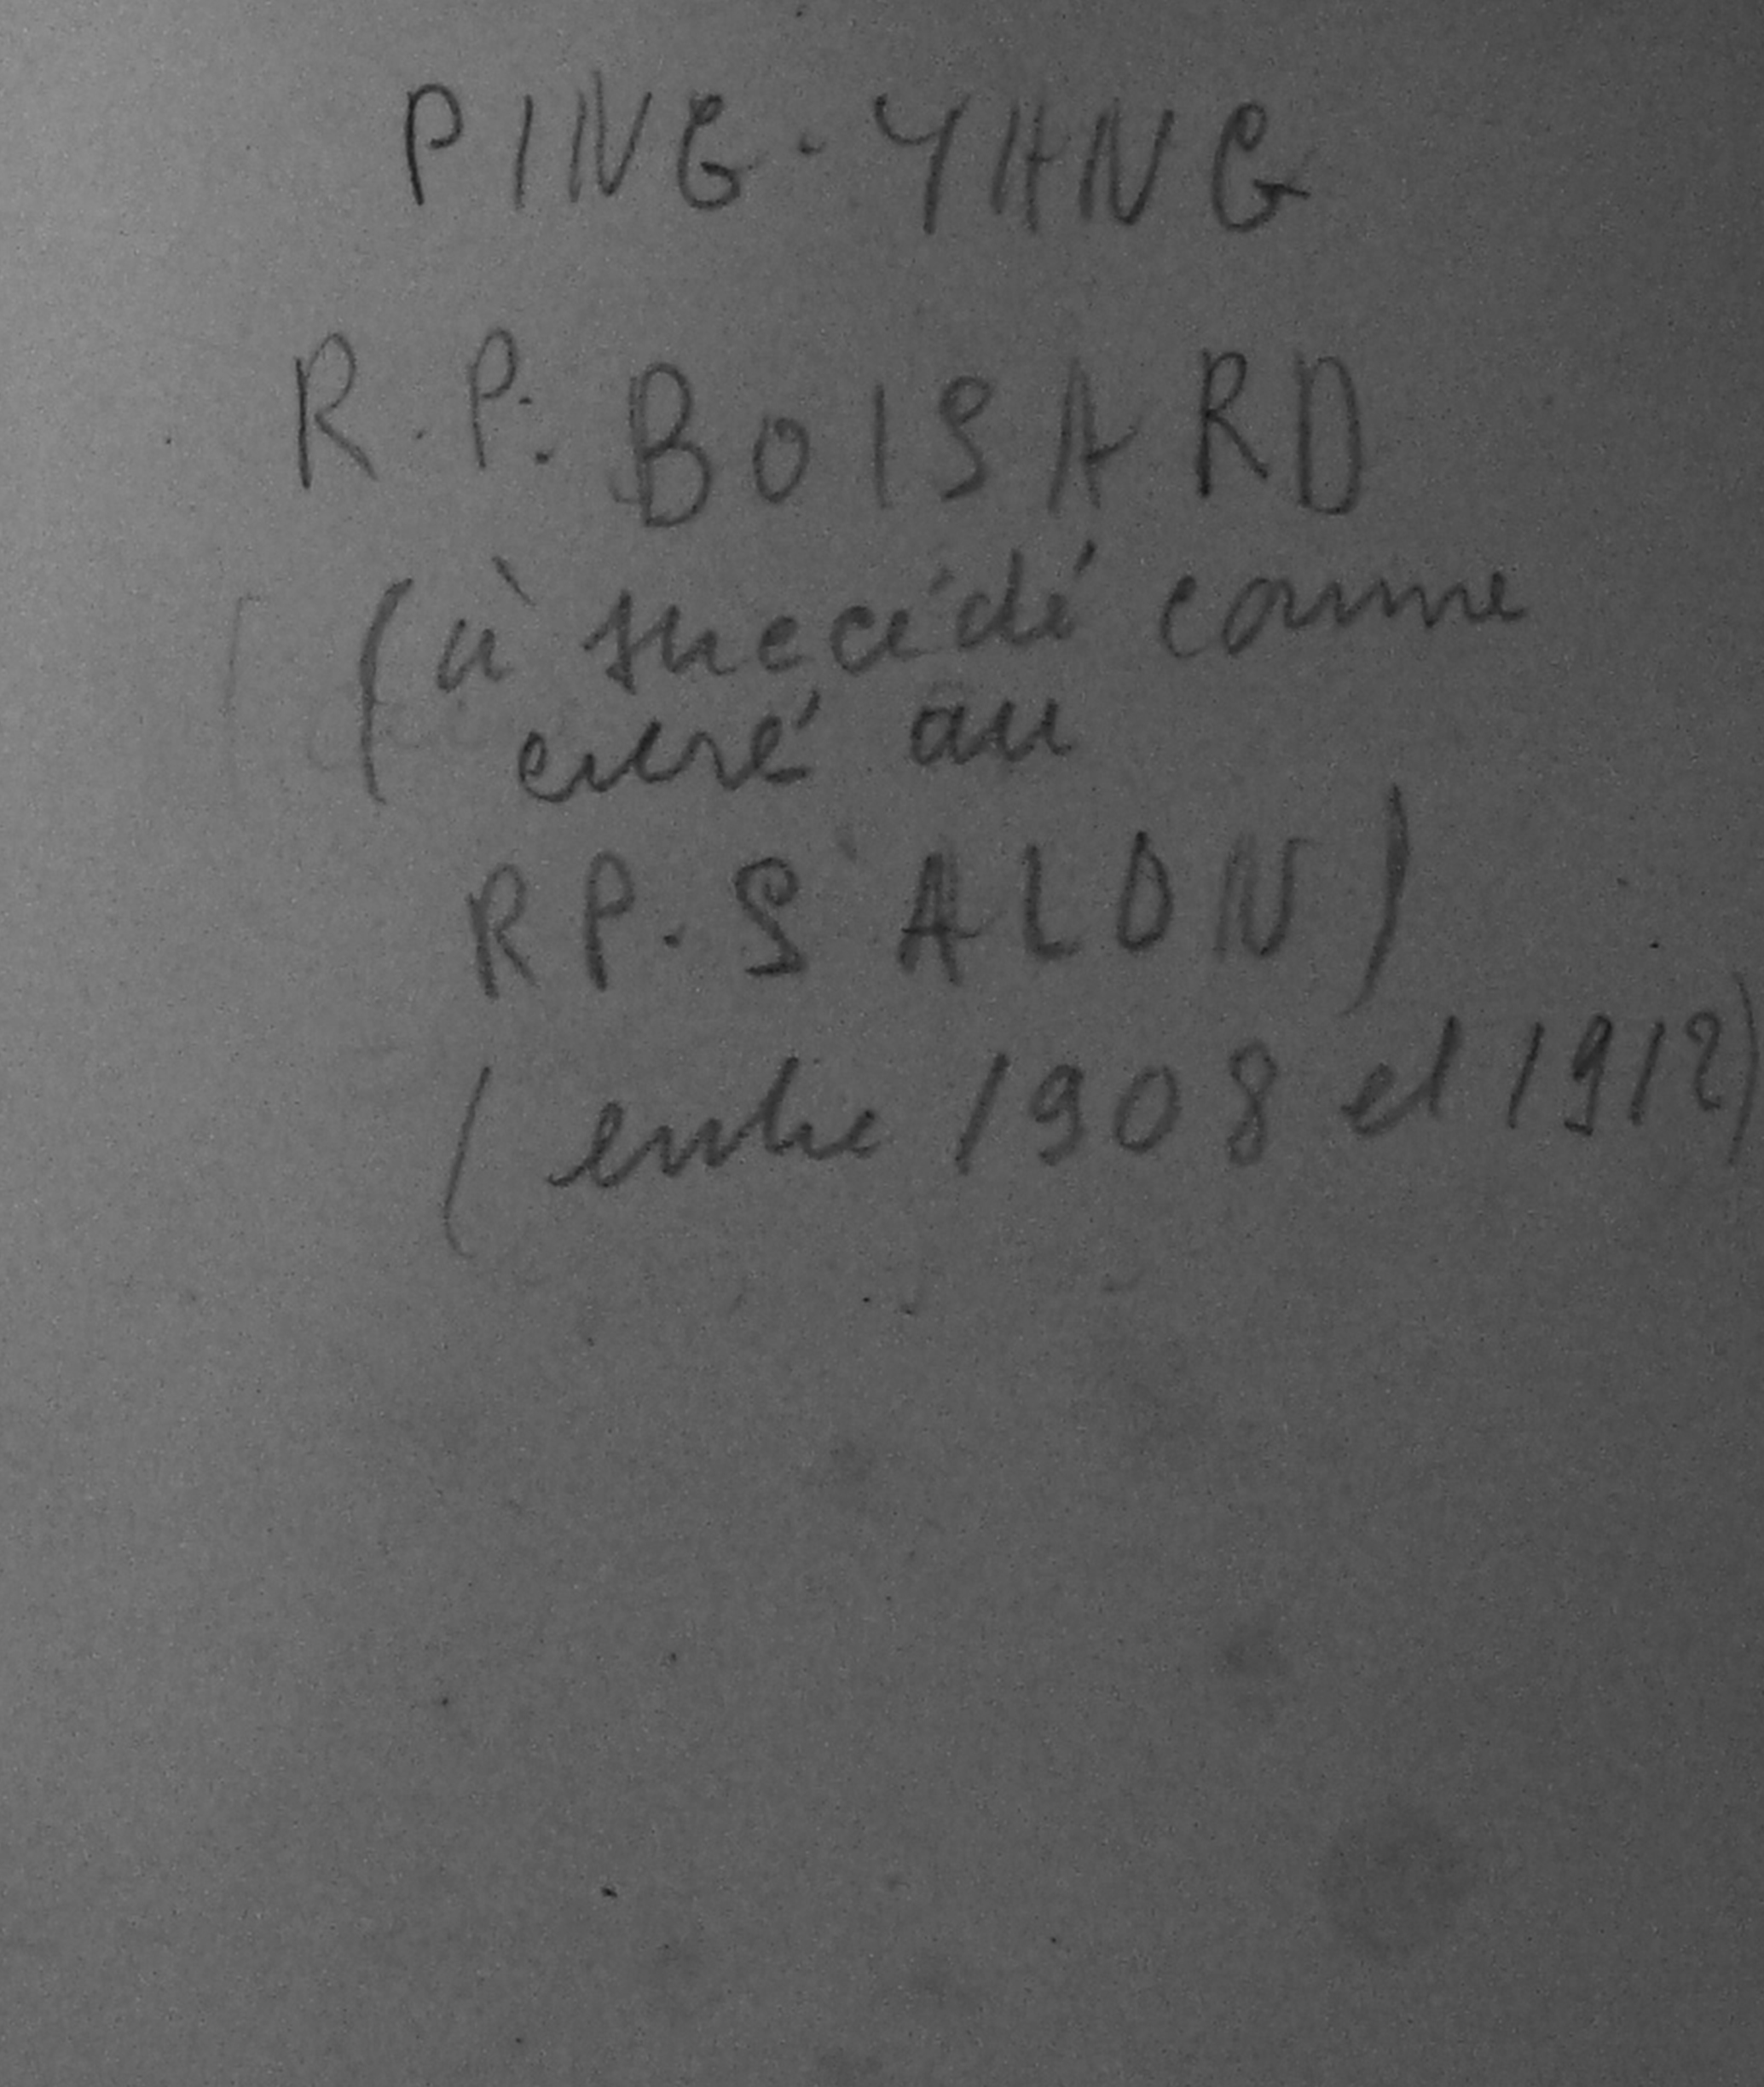 PING-YANG
R.P. BOISARD
(à succédé comme
curé au
RP. SALON)
(entre 1908 et 1912)